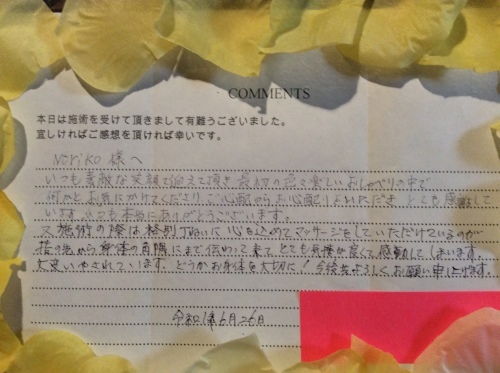 COMMENTS
本日は施術を受けて頂きまして有難うございました。
宜しければご感想を頂ければ幸いです。
Noriko 様へ
いつも素敵な笑顔で迎えて頂き 最初の 楽しいおしゃべりの中で
何かとお気にかけてくださり、ご心配やら お心配りいただき とても感謝して
います。いつも本当にありがとうございます。
又 施術の際は格別 丁ねいに 心を込めてマッサージをしていただけているのが
指先から 身体の 隅にまで 伝わって来て とても気持が良くて感動してしまいます。
いやされています。どうかお身体を大切に! 今後共よろしくお願い申し上げます。
令和 年6月26日